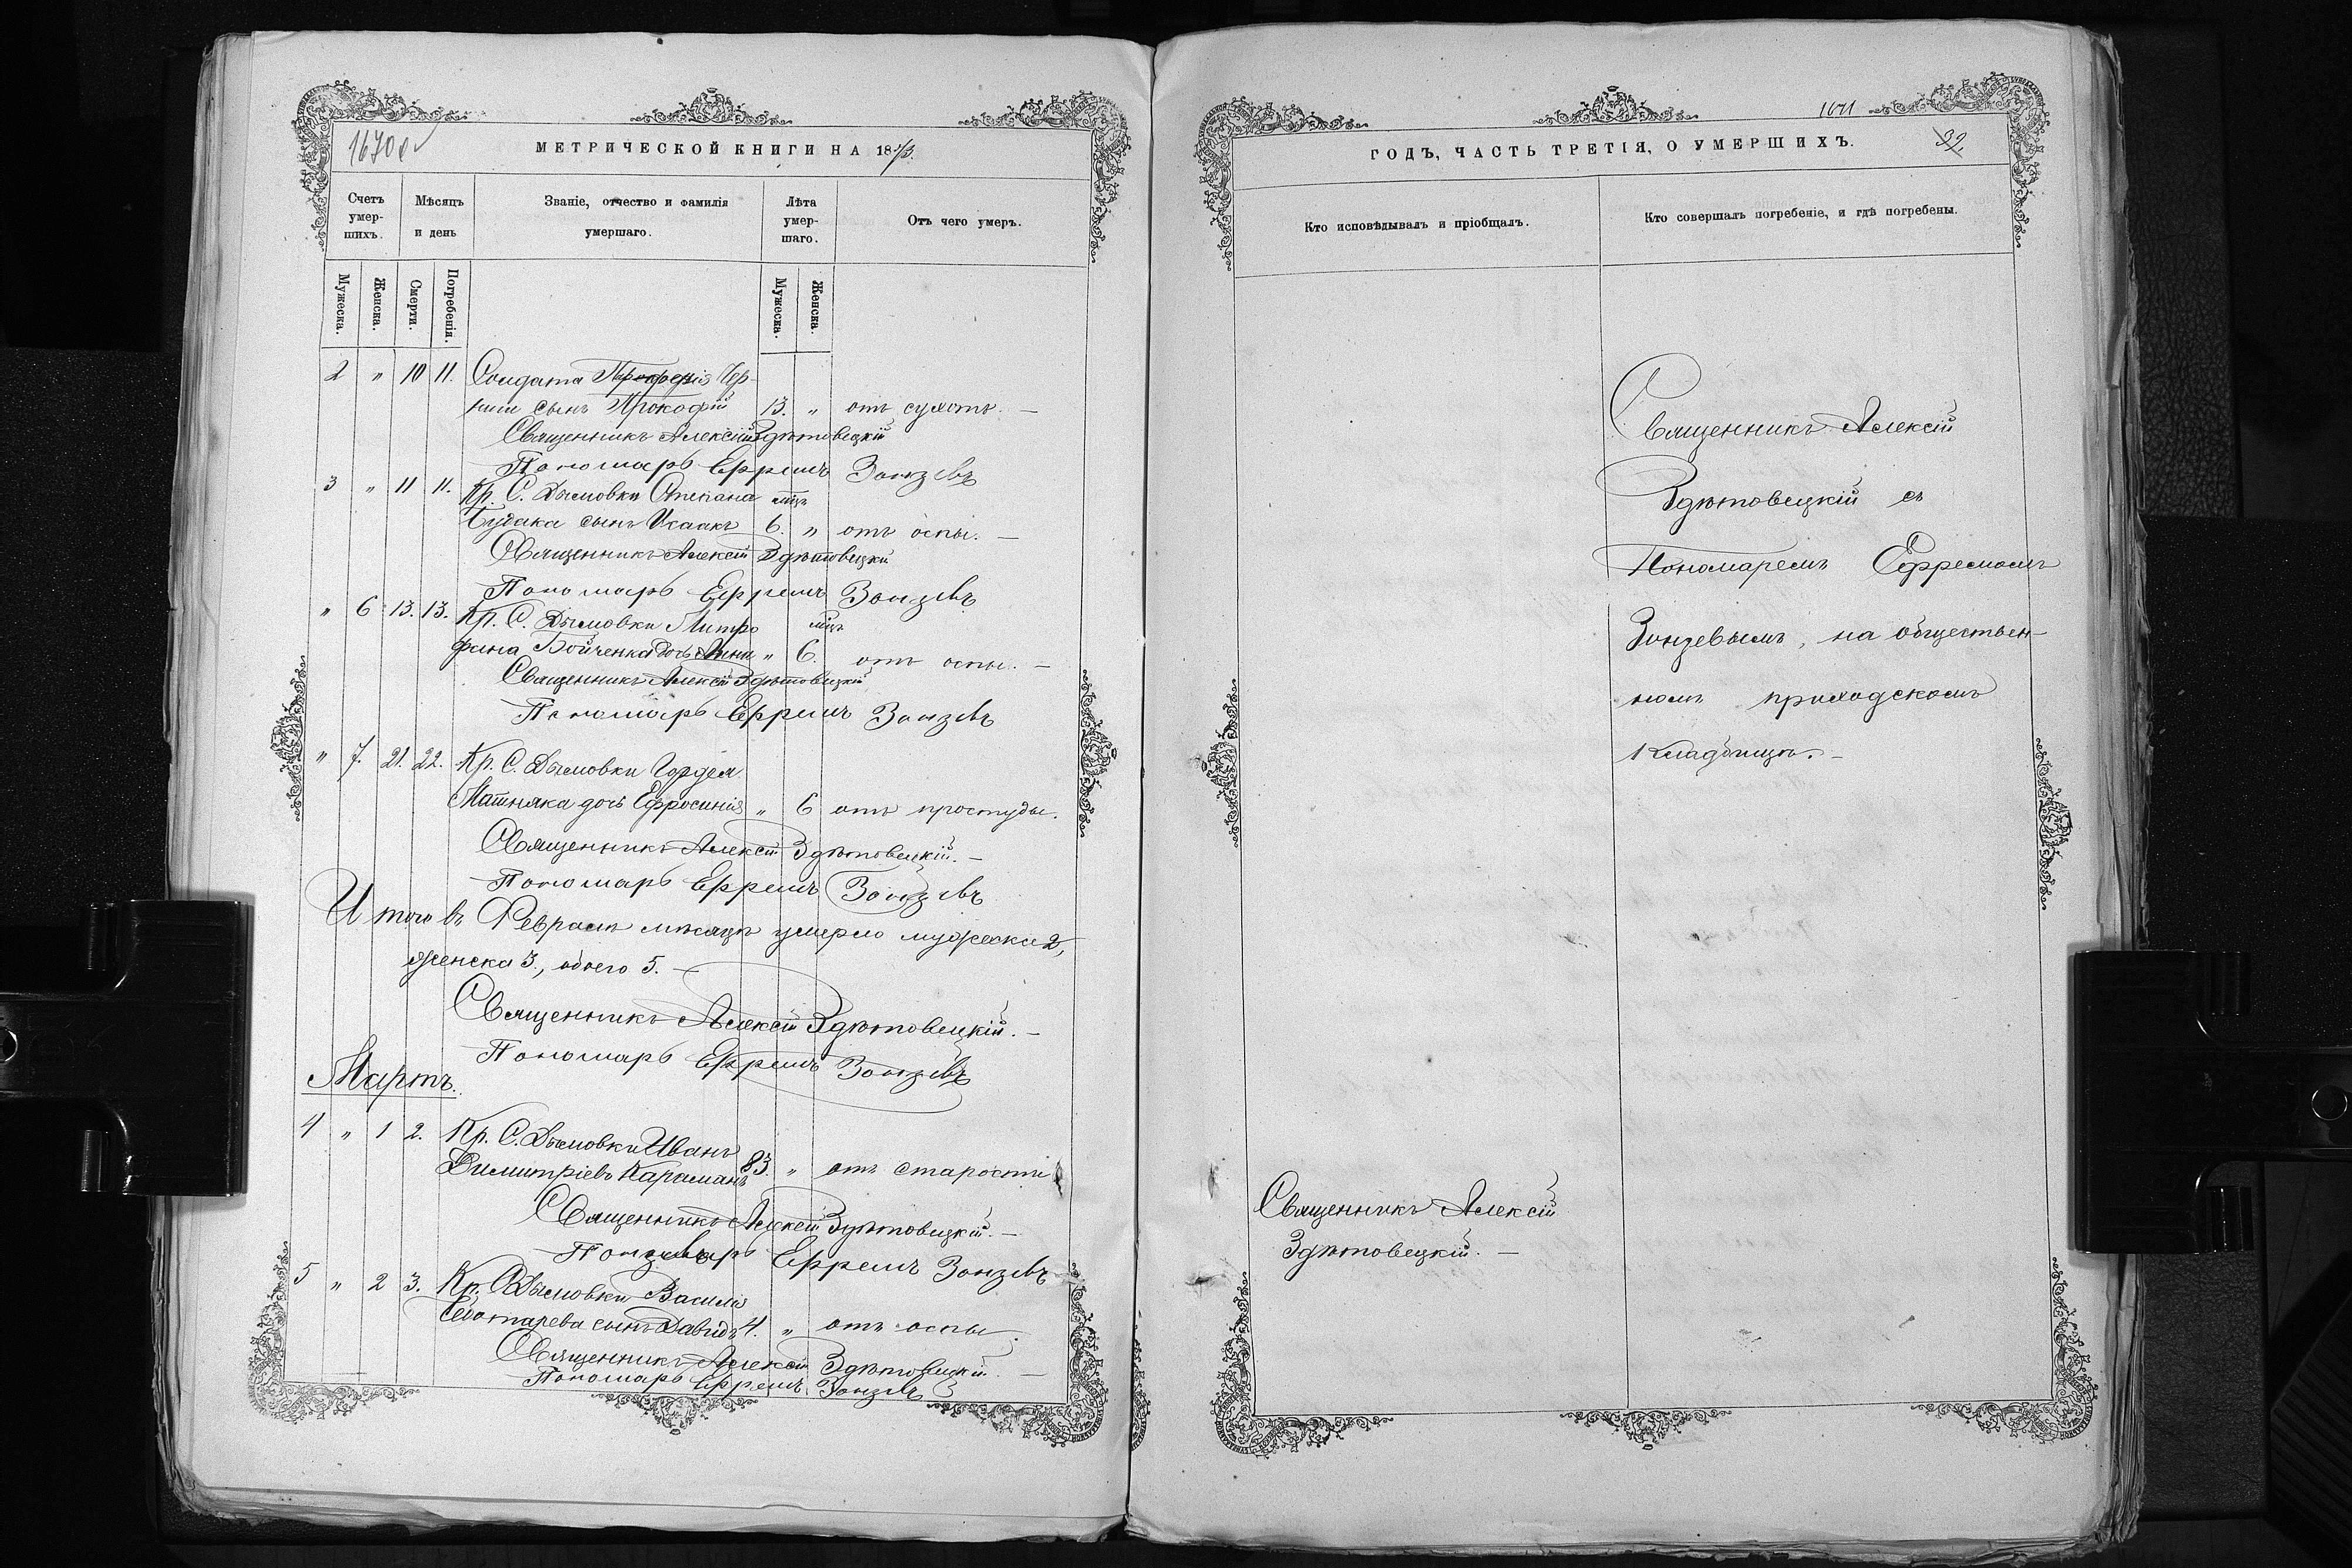 1670
МЕТРИЧЕСКОЙ КНИГИ НА 18
Счетъ умер-шихъ.
Мѣсяцъ и день
Званіе, отчество и фамилія умершаго.
Лѣта умер-шаго.
Отъ чего умеръ.
Мужеска.
Женска.
Смерти.
Погребенія.
Мужеска.
Женска.
2 " 10 11. Солдата
сынъ Прокофій 13. " отъ сухотъ. —
Священникъ Алексій Здѣтовецкій
Пономарь Ефремъ Зонзевъ
3 " 11 11. Кр. С. Дымовки Степана мѣц
Будака сынъ Исаакъ 6. " отъ оспы. —
Священникъ Алексій Здѣтовецкій
Пономарь Ефремъ Зонзевъ
" 6 13. 13. Кр. С. Дымовки Митро мѣц
фана Бойченка дочь Анна " 6. отъ оспы. —
Священникъ Алексій Здѣтовецкій
Пономарь Ефремъ Зонзевъ
" 7. 21. 22. Кр. С. Дымовки Гордея
Матняка дочь Ефросинія " 6 отъ простуды.
Священникъ Алексій Здѣтовецкій. —
Пономарь Ефремъ Зонзевъ
Итого въ Февралѣ мѣсяцѣ умерло мужеска 2,
женска 3., обоего 5. —
Священникъ Алексій Здѣтовецкій. —
Пономарь Ефремъ Зонзевъ
Мартъ.
4 " 1 2. Кр. С. Дымовки Иванъ
Димитріевъ Караманъ 83. " отъ старости
Священникъ Алексій Здѣтовецкій. —
Ефремъ Зонзевъ
5 " 2 3. Кр. С. Дымовки Василія
Чеботарева сынъ Давидъ 4. " отъ оспы.
Священникъ Алексій Здѣтовецкій. —
Пономарь Ефремъ Зонзевъ
1671
ГОДЪ, ЧАСТЬ ТРЕТІЯ, О УМЕРШИХЪ.
39.
Кто исповѣдывалъ и пріобщалъ.
Кто совершалъ погребеніе, и гдѣ погребены.
Священникъ Алексій
Здѣтовецкій съ
Пономаремъ Ефремомъ
Зонзевымъ, на обществен-
номъ приходскомъ
кладбищѣ. —
Священникъ Алексій
Здѣтовецкій. —